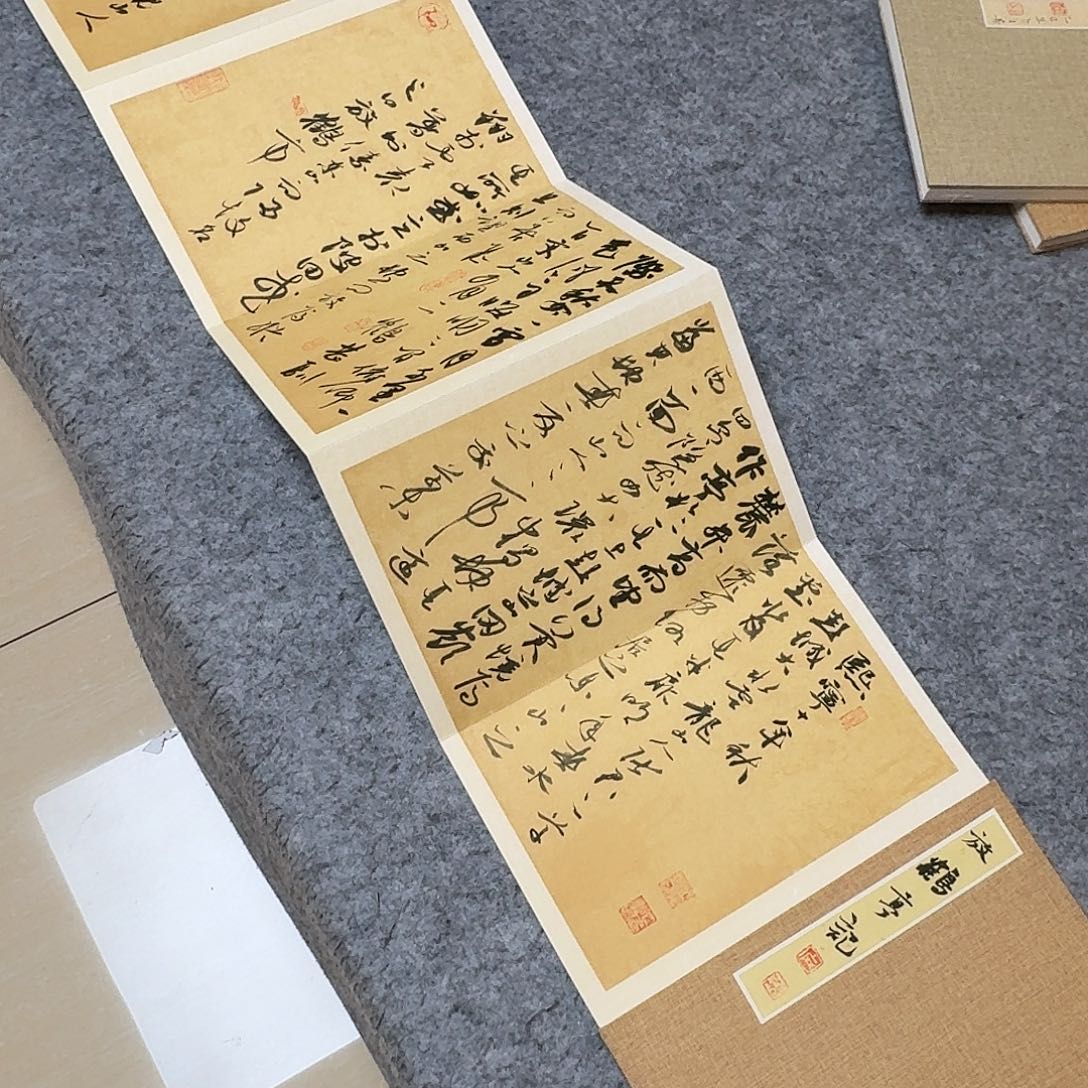 放鶴亭記
熙寧十年秋
彭城大水雲龍山人張君之草
堂水及其半扉明年春水
落遷於故居之東東山之
麓升高而望得異境焉
作亭於其上彭城之山岡嶺
四合隱然如大環獨缺
其西一面而山人之亭適
當其缺春夏之交草木
際天秋冬雪月千里
一色風雨晦明之間俯仰
百變山人有二鶴甚馴
而善飛旦則望西山之缺而放焉
縱其所如或立於陂田或
翔於雲表暮則傃東山而歸故名
之曰放鶴亭
山人